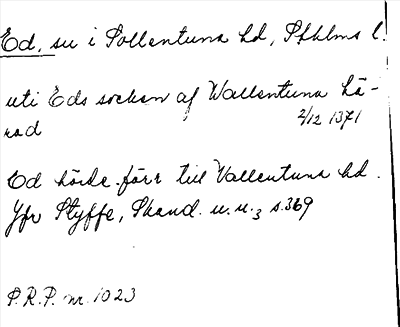 Ed, su i Sollentuna hd, Sthlms l.
uti Eds socken af Wallentuna hä-
rad 2/12 1371
Ed hörde förr till Vallentuna hd.
Jfr Styffe, Skand. u. u.3 s. 369
P.R.P. nr. 1023